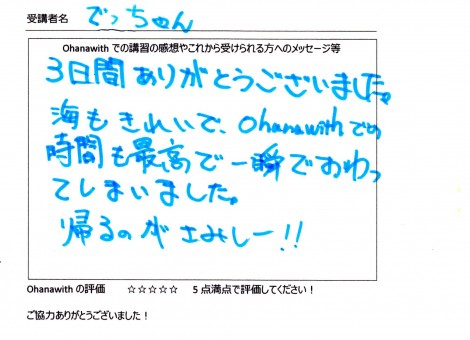 受講者名 でっちゃん
Ohanawith での講習の感想やこれから受けられる方へのメッセージ等
3日間ありがとうございました。
海もきれいで、Ohanawithでの
時間も最高で一瞬でおわっ
てしまいました。
帰るのがさみしー!!
Ohanawith の評価 ☆☆☆☆☆ 5 点満点で評価してください！
ご協力ありがとうございました！